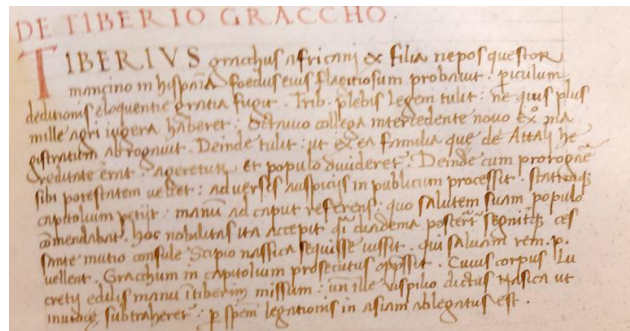 DE TIBERIO GRACCHO.
TIBERIVS gracchus africani ex filia nepos questor
mancino in hispania foedus eius flagitiosum probauit. piculum
deditionis eloquentie gratia fugit. Trib. plebis legem tulit: ne quis plus
mille agri iugera haberet: Octauio collega intercedente nouo exo ma
gistratum abrogauit. Deinde tulit: ut ex ea familia que de Attali he
reditate erat. ageretur et populo diuideret. Deinde cum prorogare
sibi potestatem uellet: aduersis auspicijs in publicum processit. Statimque
capitolium petijt: manu ad caput referens. quo salutem suam populo
comendabat. hoc nobilitas ita accepit. qi diadema posceret segnitque ces
sante mutio consule Scipio nassica sequi se iussit. qui saluam rem. p.
uellent. Gracchum in capitolium prosecutus oppssit. Cuius corpus lu
cretij edilis manu i tiberim missum: un ille uispilio dictus Nasica ut
inuidie subtraheret: p spem legationis in asiam ablegatus est.